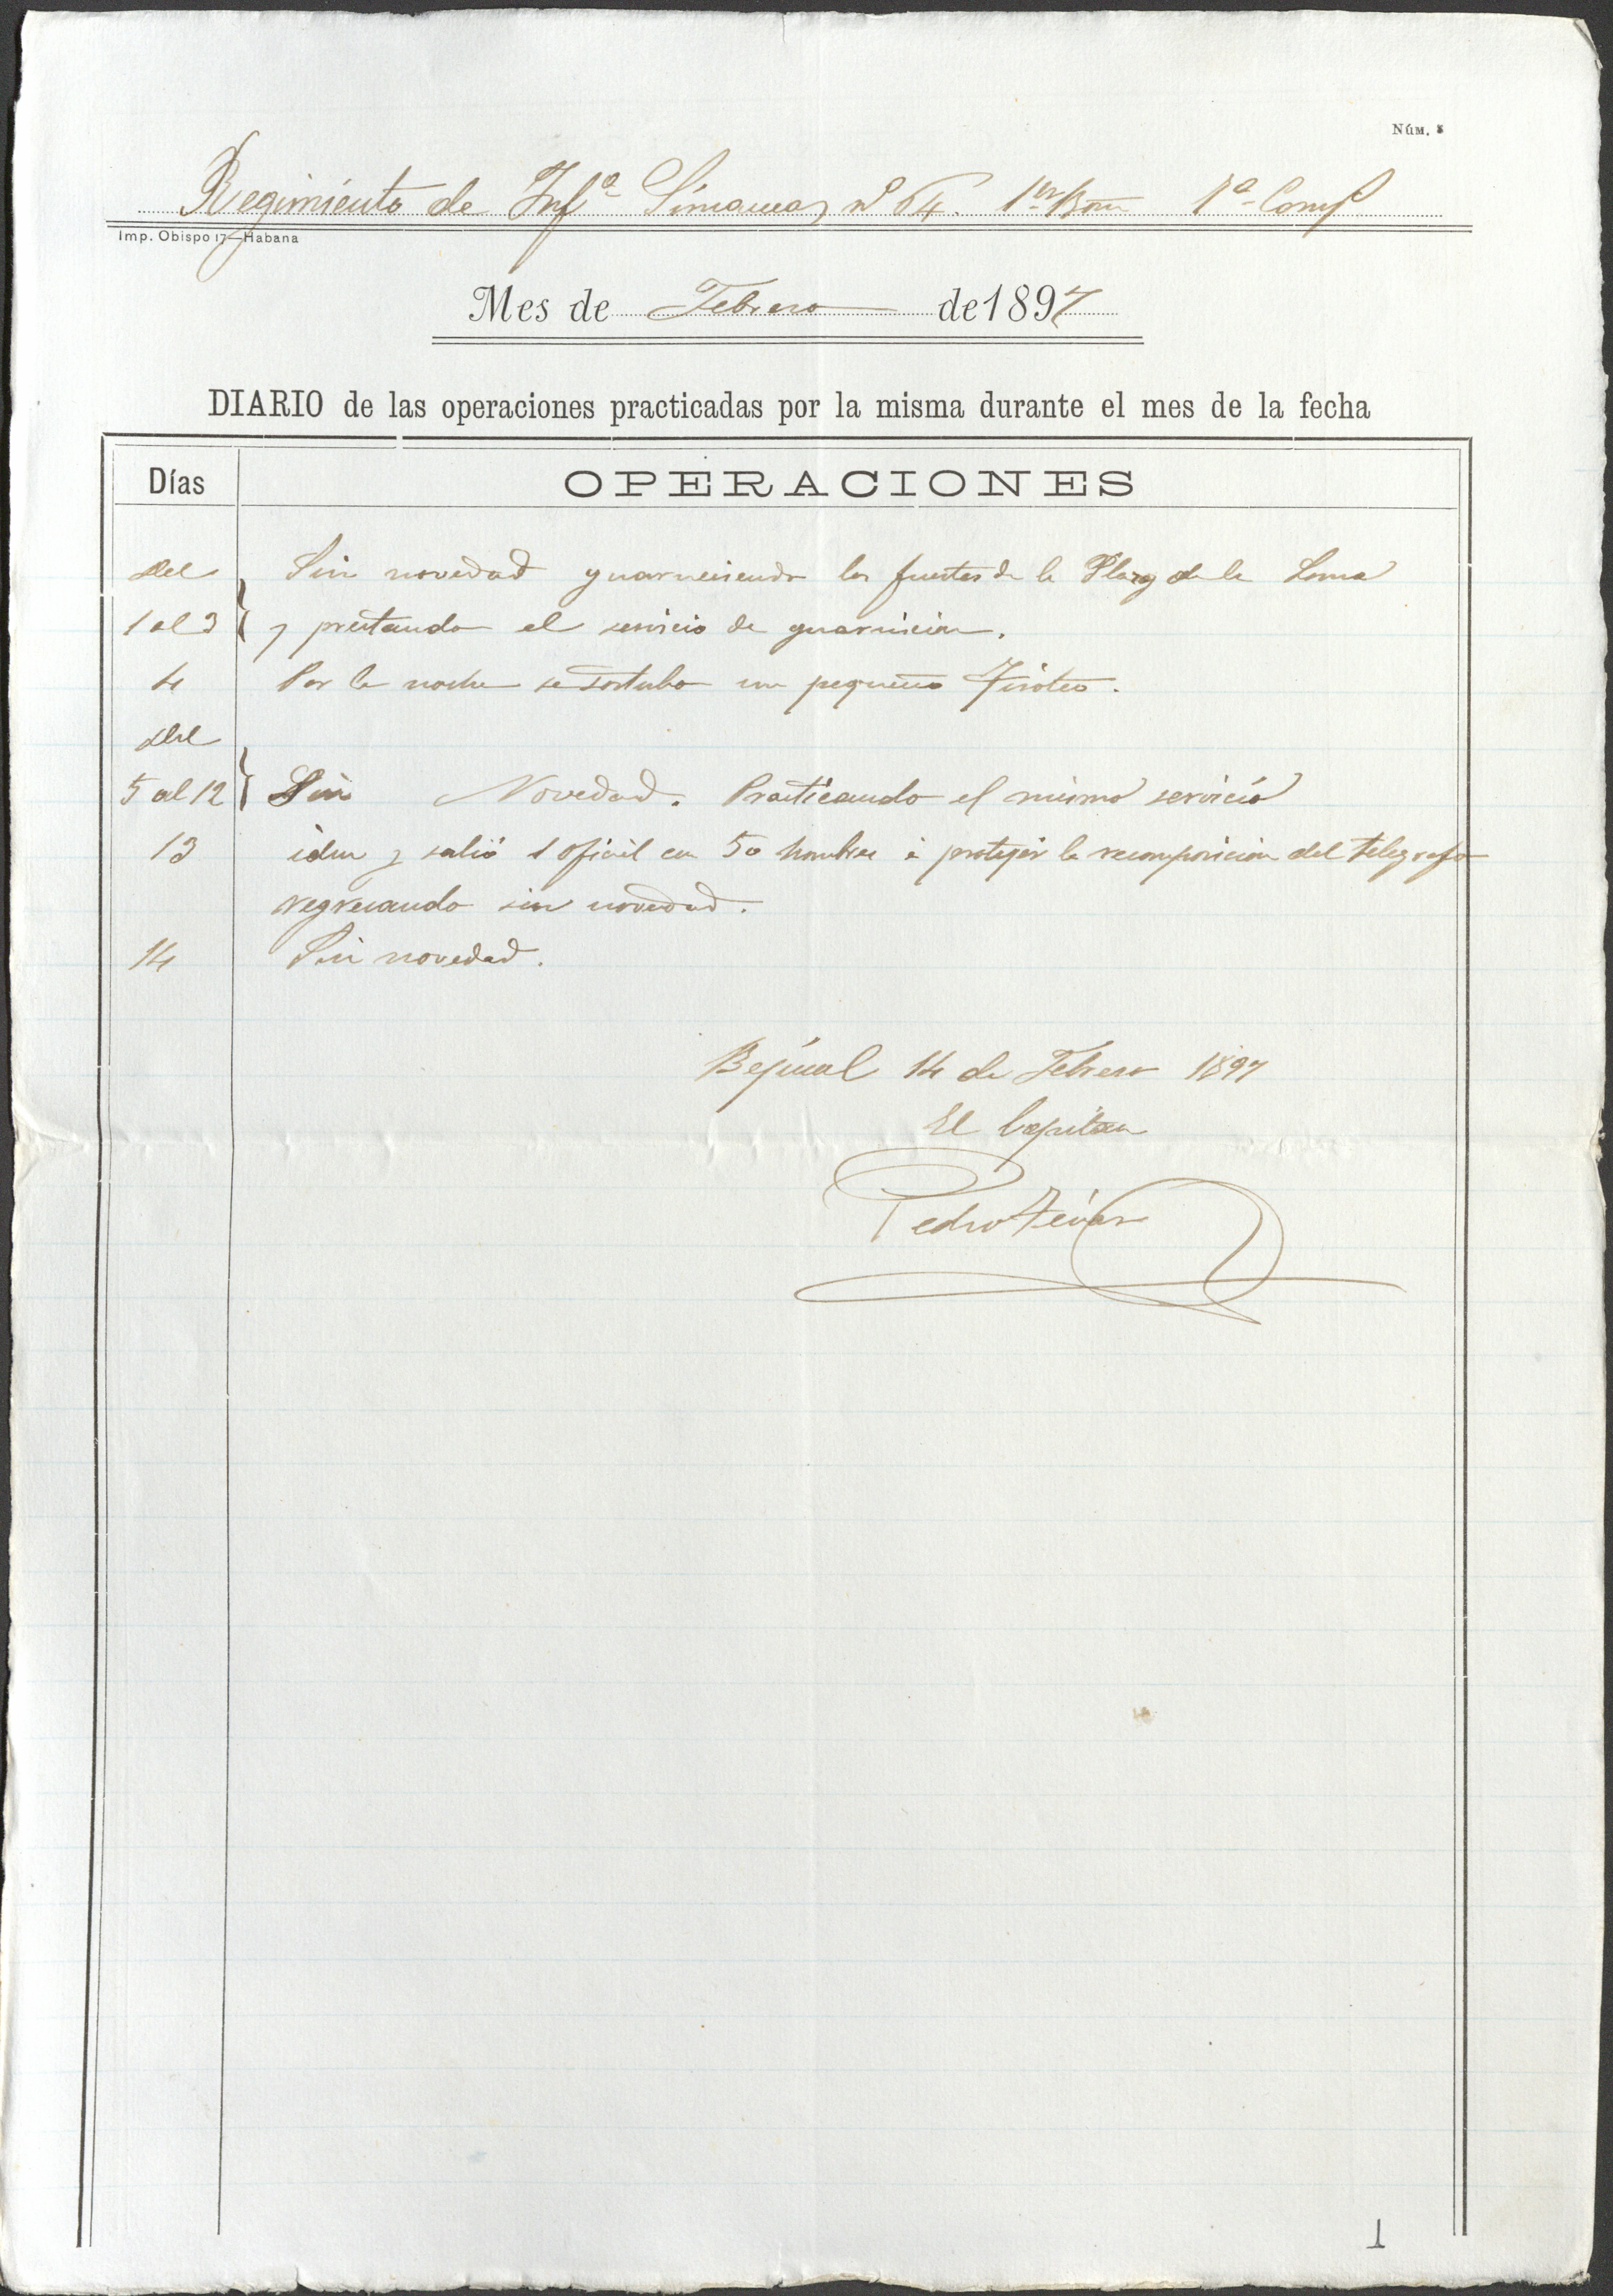 Núm. 8
Regimiento de Inf.ª Simancas nº 64. 1er Bon 1ª Comp
Imp. Obispo 17—Habana
Mes de Febrero de 1897
DIARIO de las operaciones practicadas por la misma durante el mes de la fecha
Días OPERACIONES
Del Sin novedad guarneciendo los fuertes de la Plaza de la Loma
1 al 3 y prestando el servicio de guarnicion.
4 Por la noche se sostubo un pequeño Tiroteo.
Del
5 al 12 Sin Novedad. Practicando el mismo servicio
13 idem y salió 1 oficial con 50 hombres á protejer la recomposicion del telegrafo
regresando sin novedad.
14 Sin novedad.
Bejucal 14 de Febrero 1897
El Capitan
Pedro Tévar
1